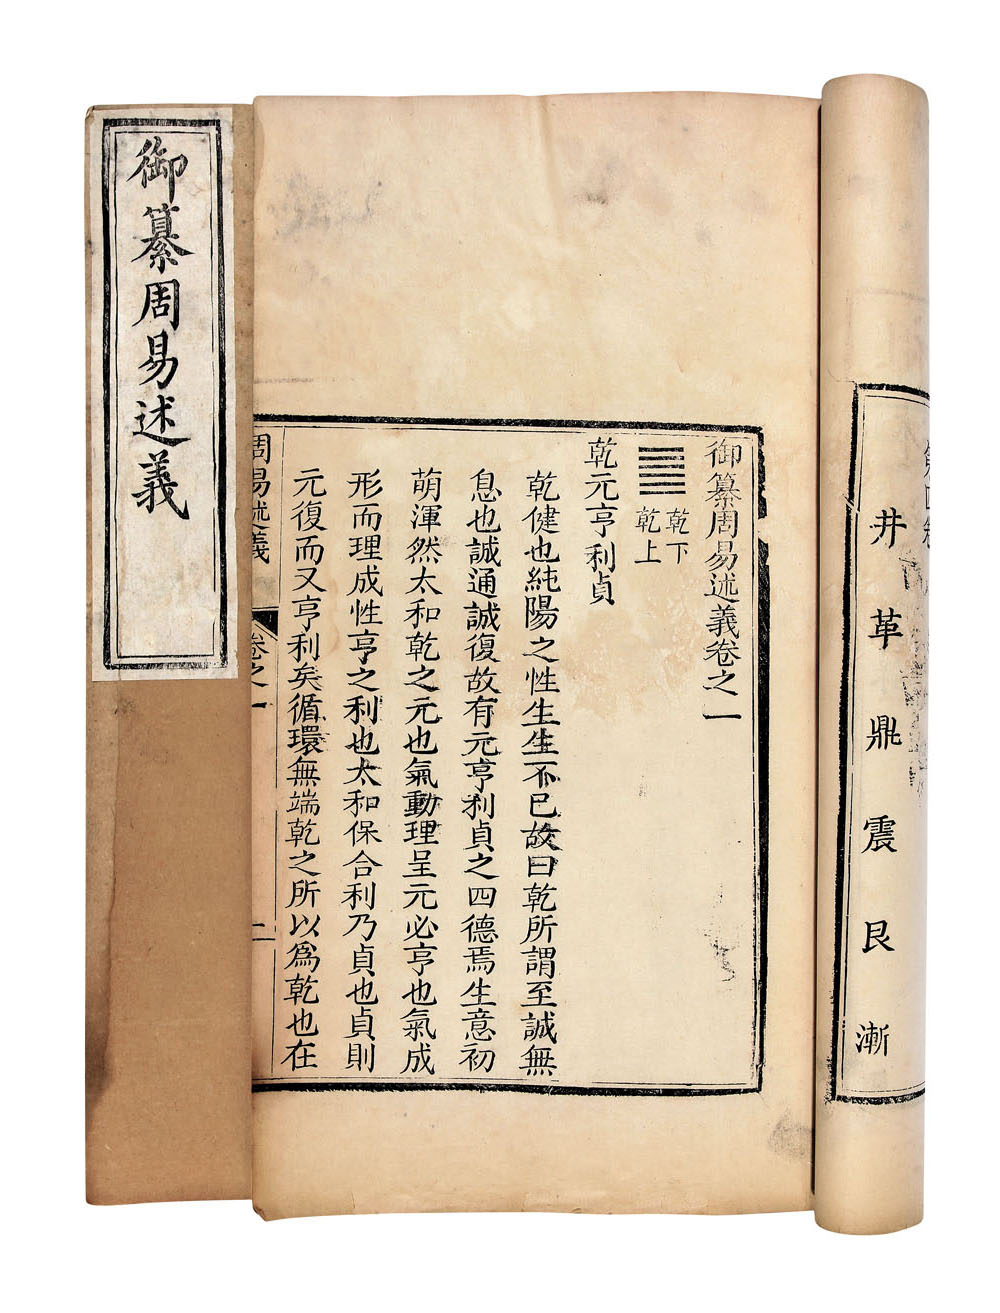 御纂周易述義
第四卷
井 革 鼎 震 艮 漸
御纂周易述義卷之一
乾下
乾上
乾元亨利貞
乾健也純陽之性生生不已故曰乾所謂至誠無
息也誠通誠復故有元亨利貞之四德焉生意初
萌渾然太和乾之元也氣動理呈元必亨也氣成
形而理成性亨之利也太和保合利乃貞也貞則
元復而又亨利矣循環無端乾之所以為乾也在
周易述義 卷之一 二